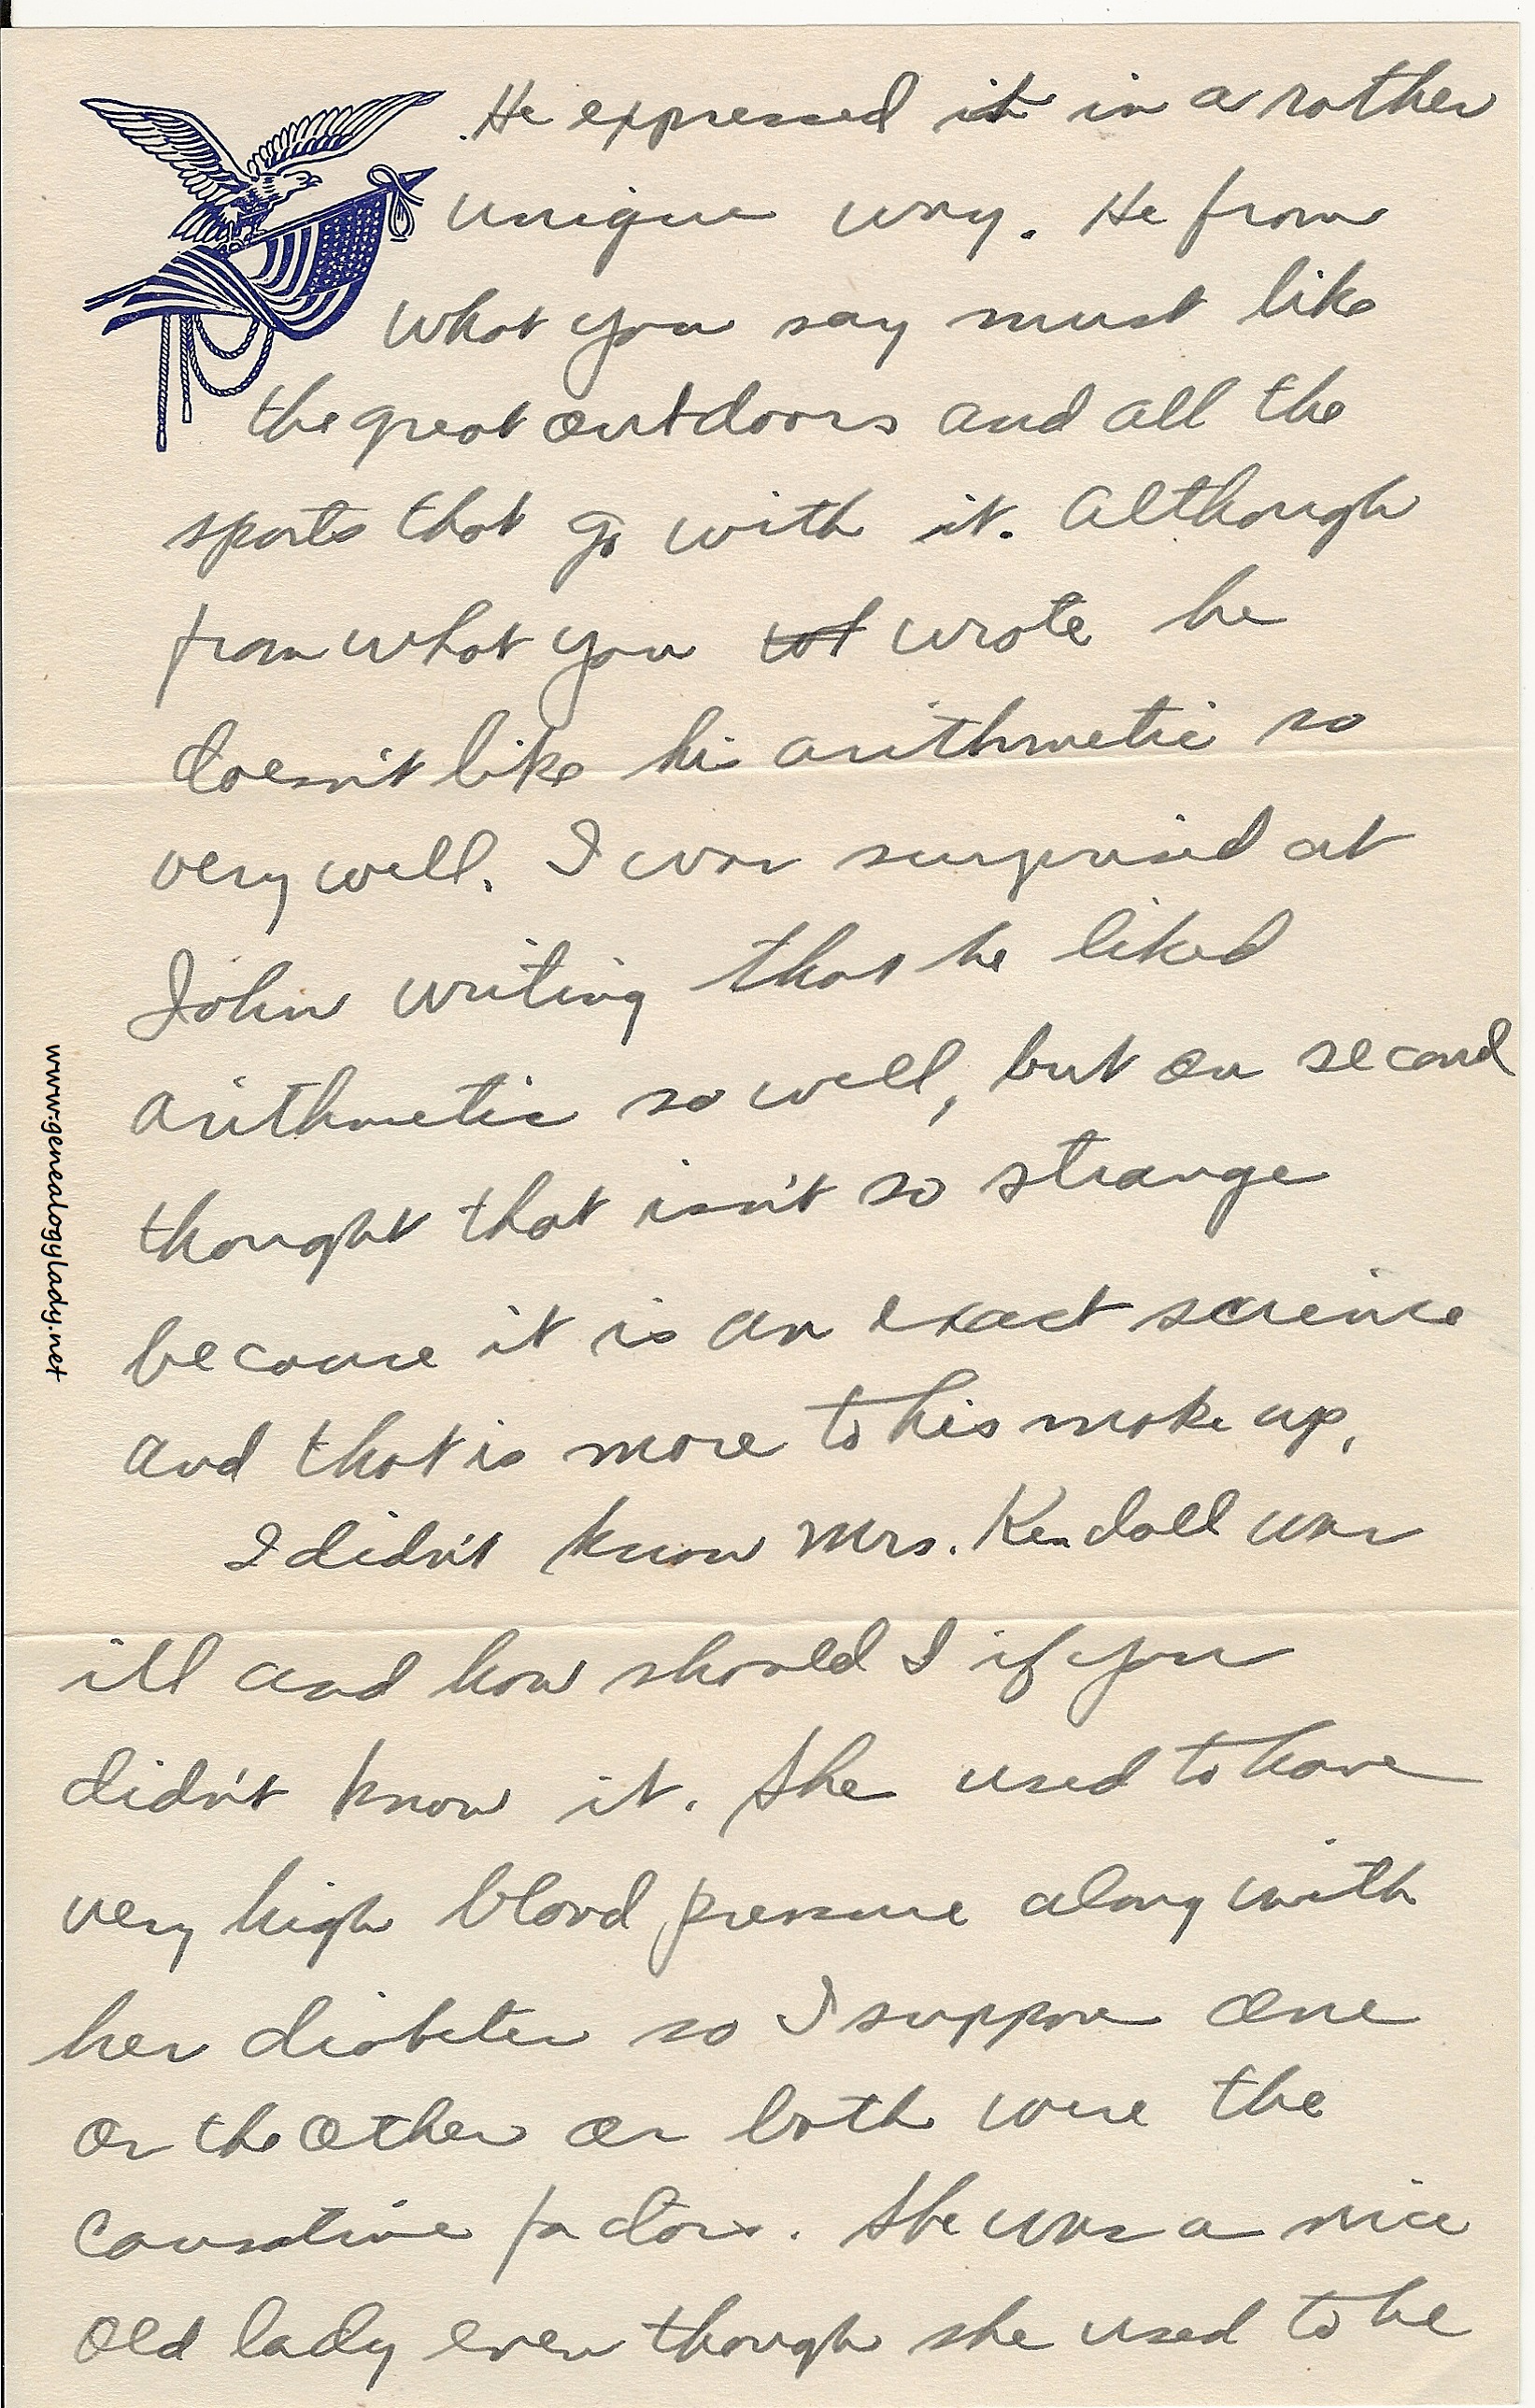 He expressed it in a rather
unique way. He from
what you say must like
the great outdoors and all the
sports that go with it. Although
from what you wrote he
doesn't like hi arithmetic so
very well. I was surprised at
John writing that he liked
arithmetic so well, but on second
thought that isn't so strange
because it is an exact science
and that is more to his make up.
I didn't know Mrs. Kendall was
ill and how should I if you
didn't know it. She used to have
very high blood pressure along with
her diabetes so I suppose one
or the other or both were the
causative factors. She was a nice
old lady even though she used to be
www.genealogylady.net